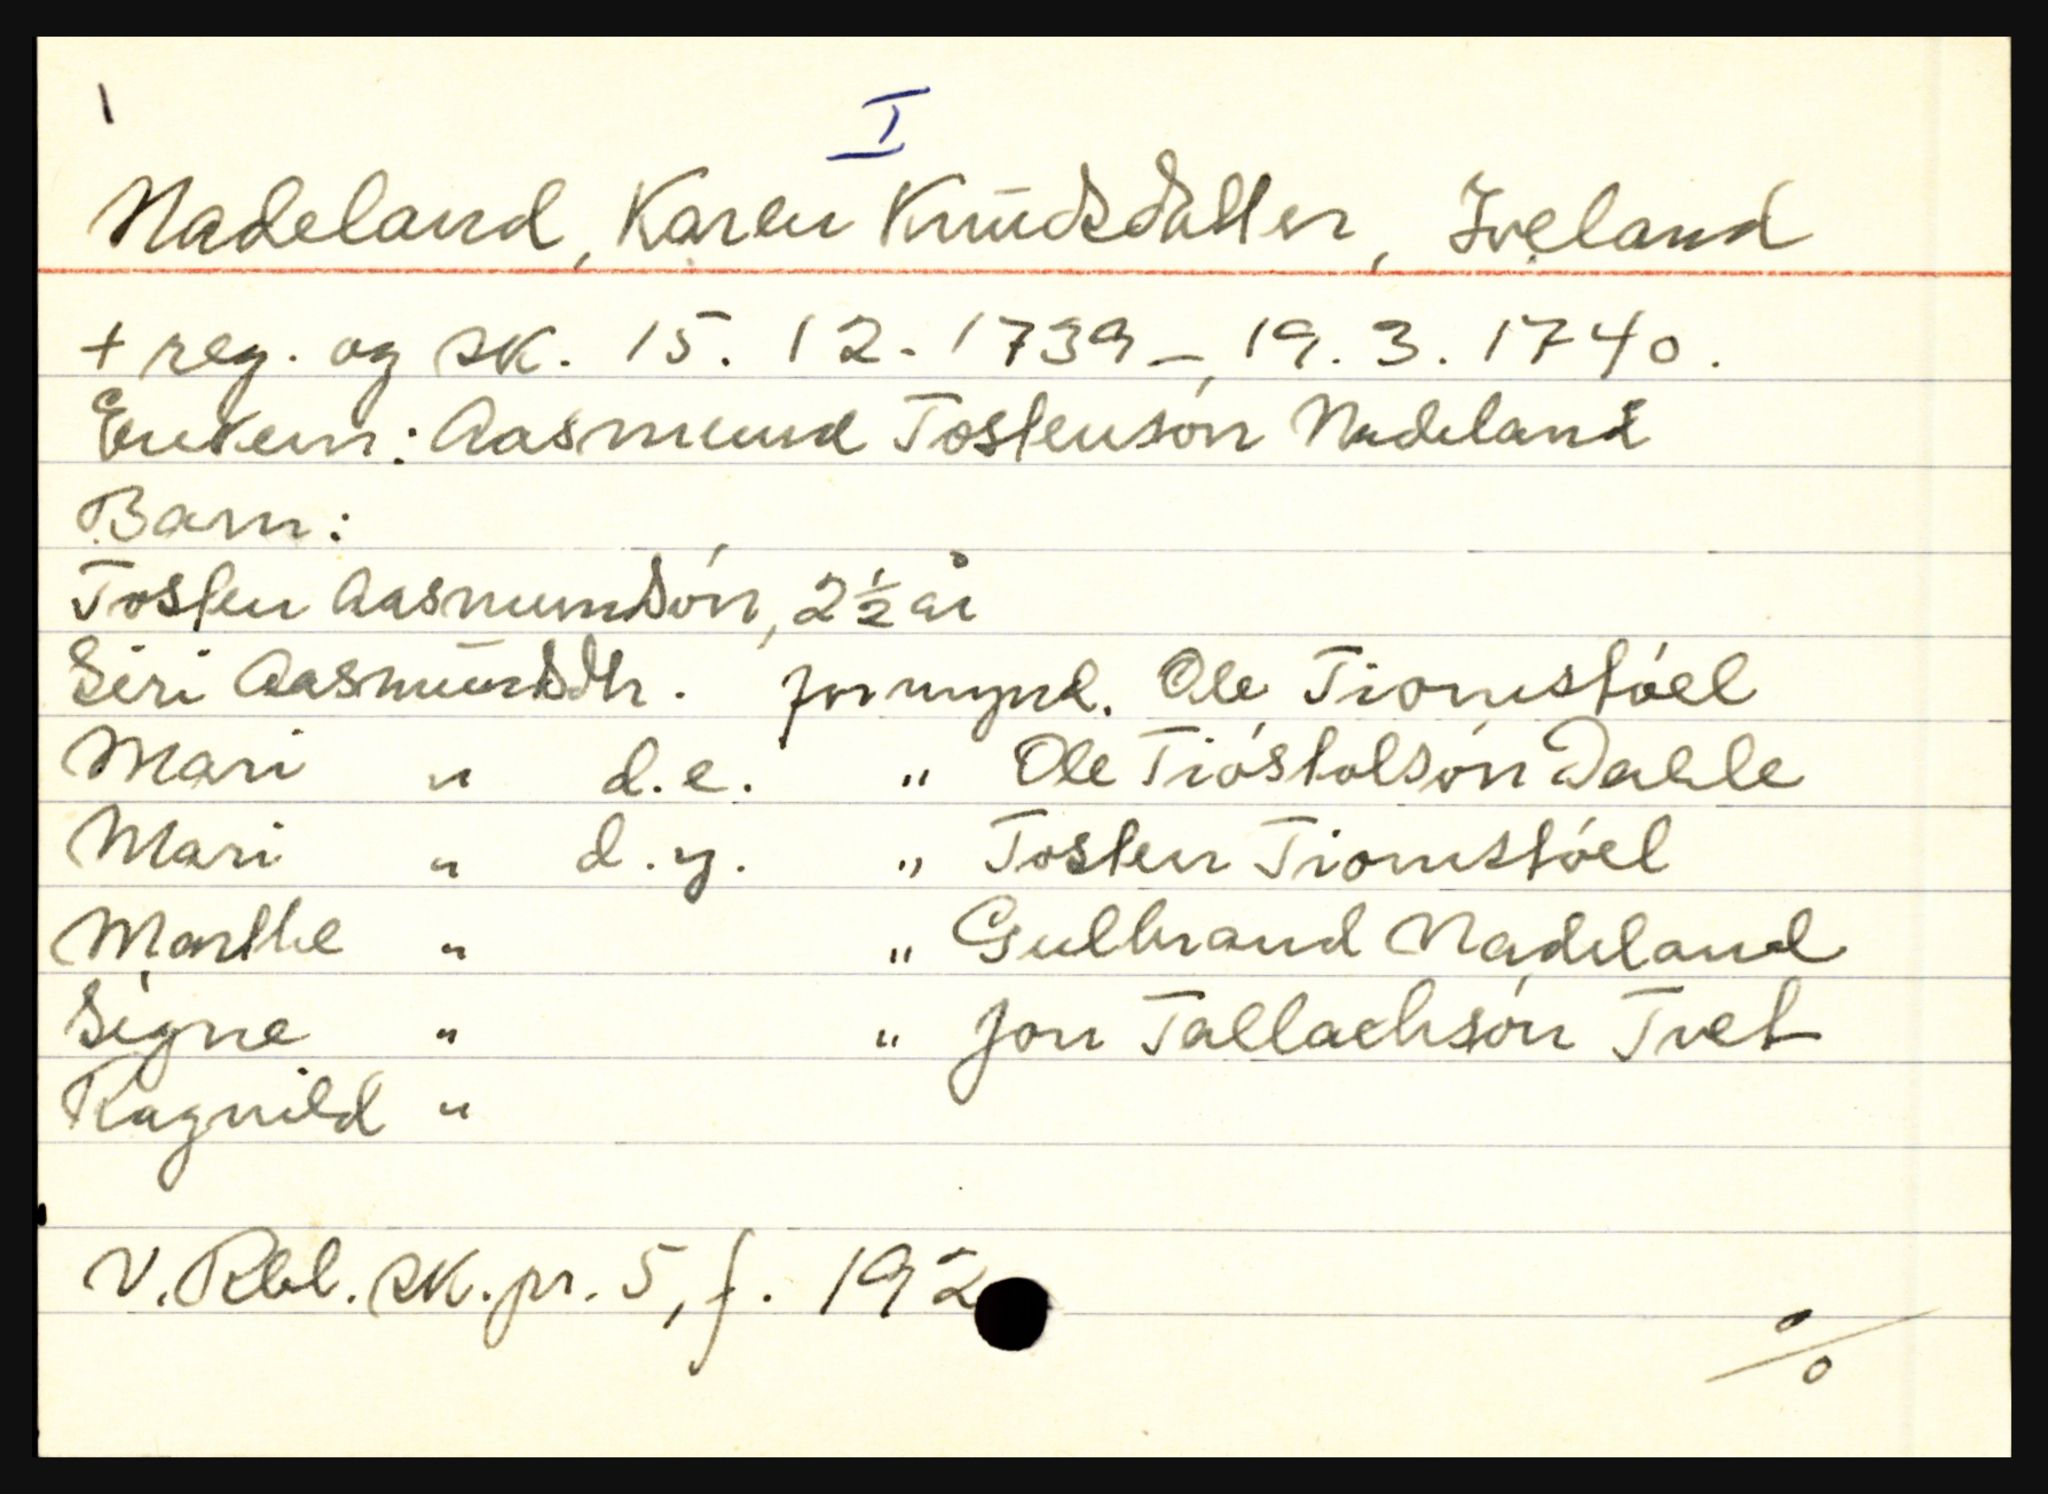 I
Nadeland, Karen Knudsdatter, Iveland
+ reg. og sk. 15. 12. 1739 - 19. 3. 1740.
Enkem: Aasmund Tostensón Nadeland
Barn:
Tosten Aasmundsón, 2½ år
Siri Aasmundsdtr. formynd. Ole Tiomstóel
Mari " d.e. " Ole Tióstolsón Dahle
Mari " d.y. " Tosten Tiomstóel
Marthe " " Gulbrand Nadeland
Signe " " Jon Tallachsón Tvet
Ragnild "
V. Rbl. sk. pr. 5, f. 192